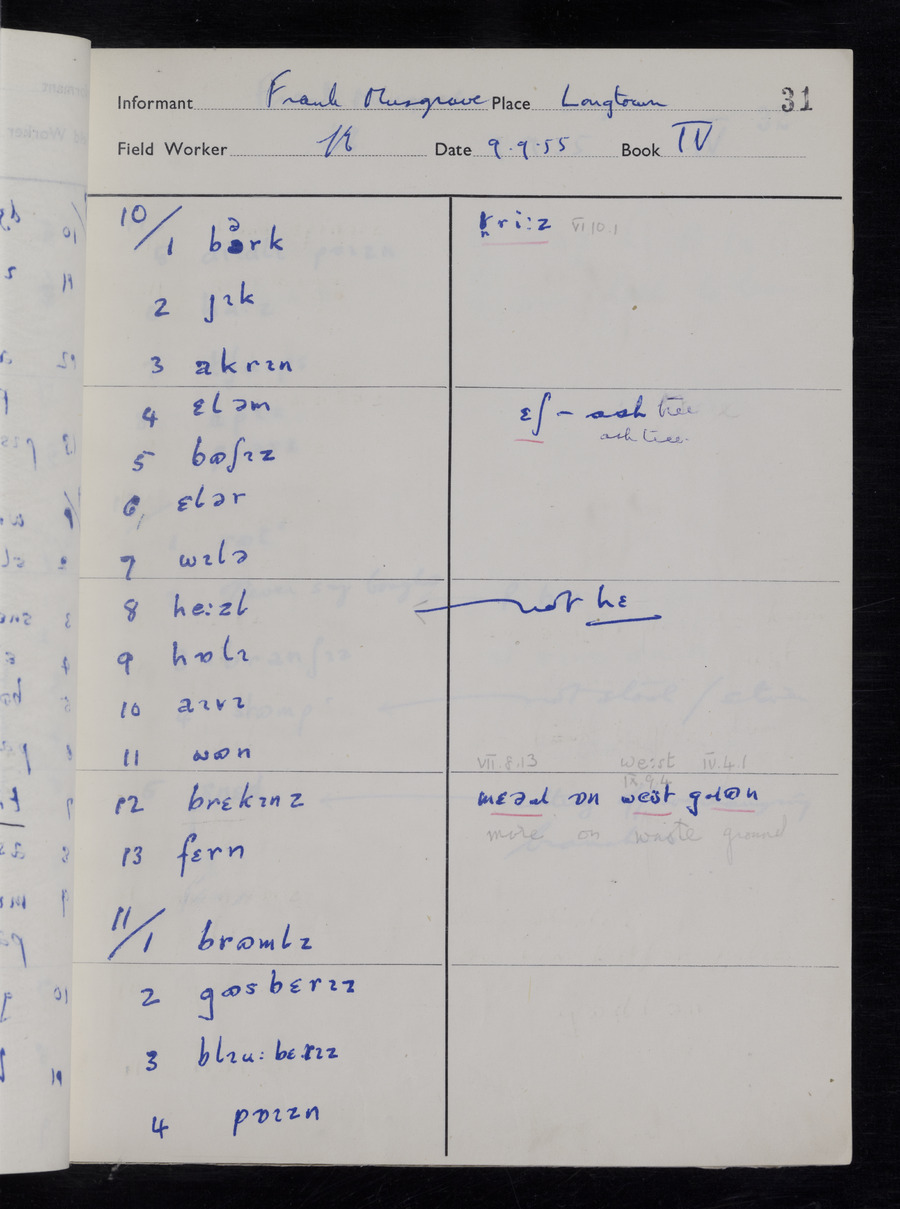 Informant Frank Musgrave Place Longtown 31
Field Worker Date 9.9.55 Book IV
10/1 bərk
ri:z VI 10.1
2 jɪk
3 akrɪn
4 ɛləm
ɛʃ – ash tree
ash tree
5 bɷʃɪz
6 ɛlər
7 wɪlə
8 he:zl
not hɛ
9 hɒlɪ
10 aɪvɪ
11 wɷn
VII.8.13 we:st IV.4.1
IX.9.4
12 brɛkɪnz
mɛəɹ ɒn west gɹɷn
more on waste ground
13 fɛrn
11/1 brɷmlz
2 gɷsbɛrɪz
3 blɪu:bɛrɪz
4 pɒɪzn